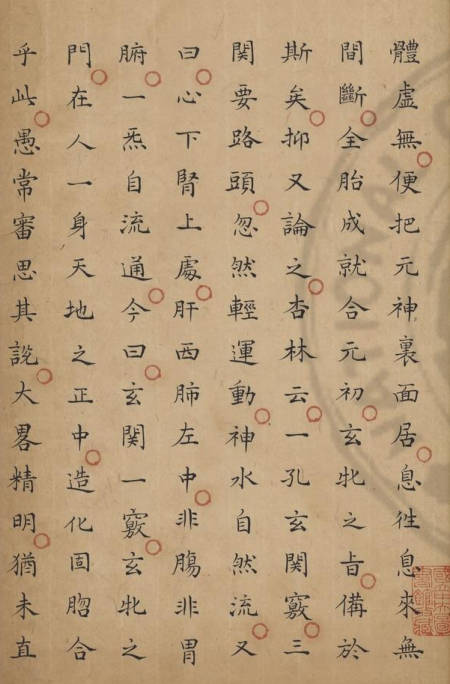 體虛無便把元神裏面居息徃息來無
間斷全胎成就合元初玄牝之旨備於
斯矣抑又論之杏林云一孔玄關竅三
関要路頭忽然輕運動神水自然流又
曰心下腎上處肝西肺左中非腸非胃
腑一炁自流通今曰玄関一竅玄牝之
門在人一身天地之正中造化固脗合
乎此愚常審思其說大畧精明猶未直